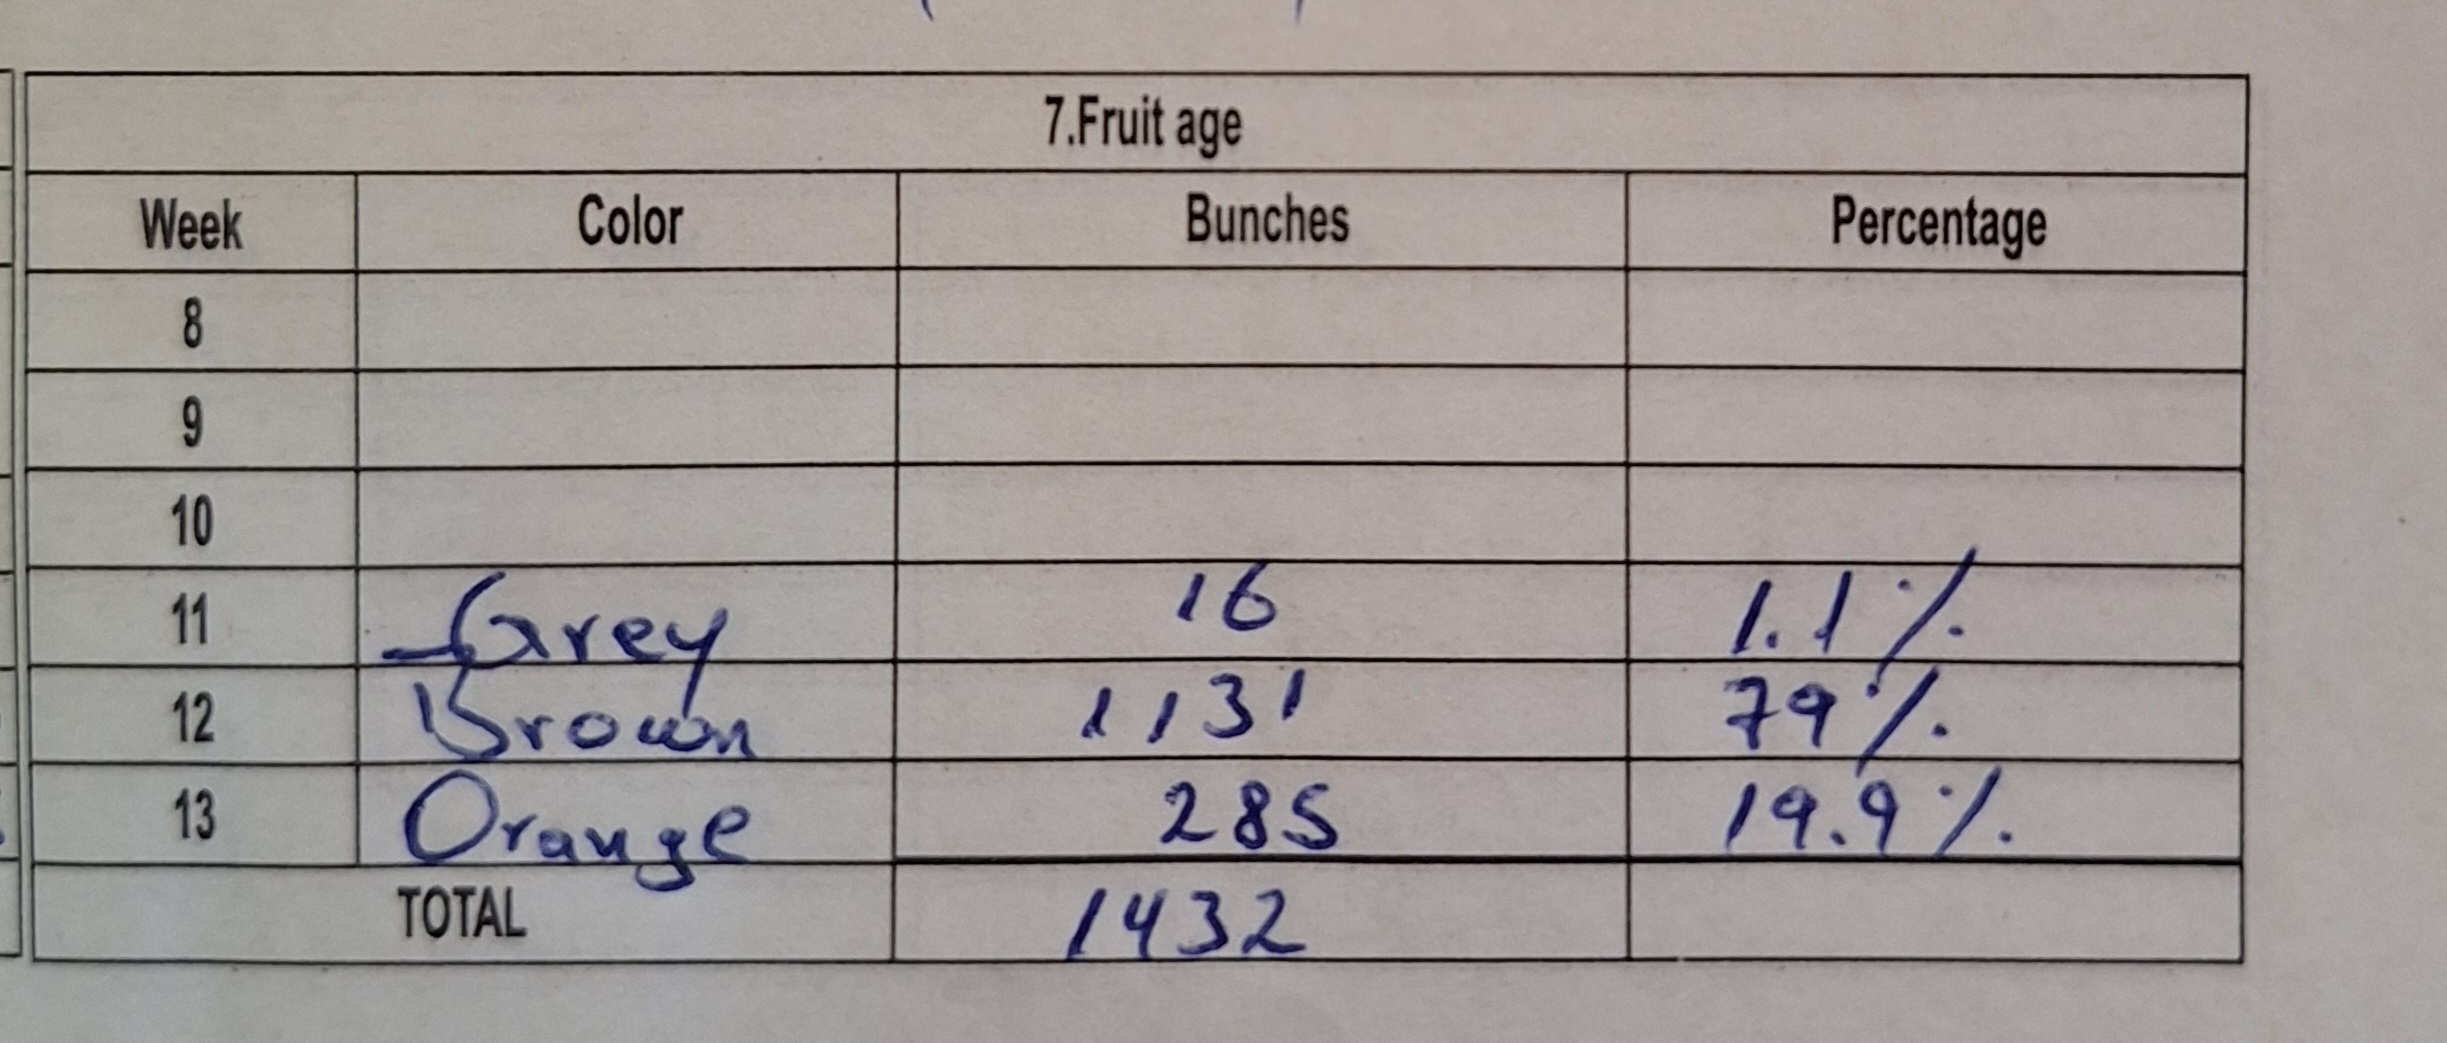 7.Fruit age
Week Color Bunches Percentage
8
9
10
11 Grey 16 1.1%
12 Brown 1131 79%
13 Orange 285 19.9%
TOTAL 1432